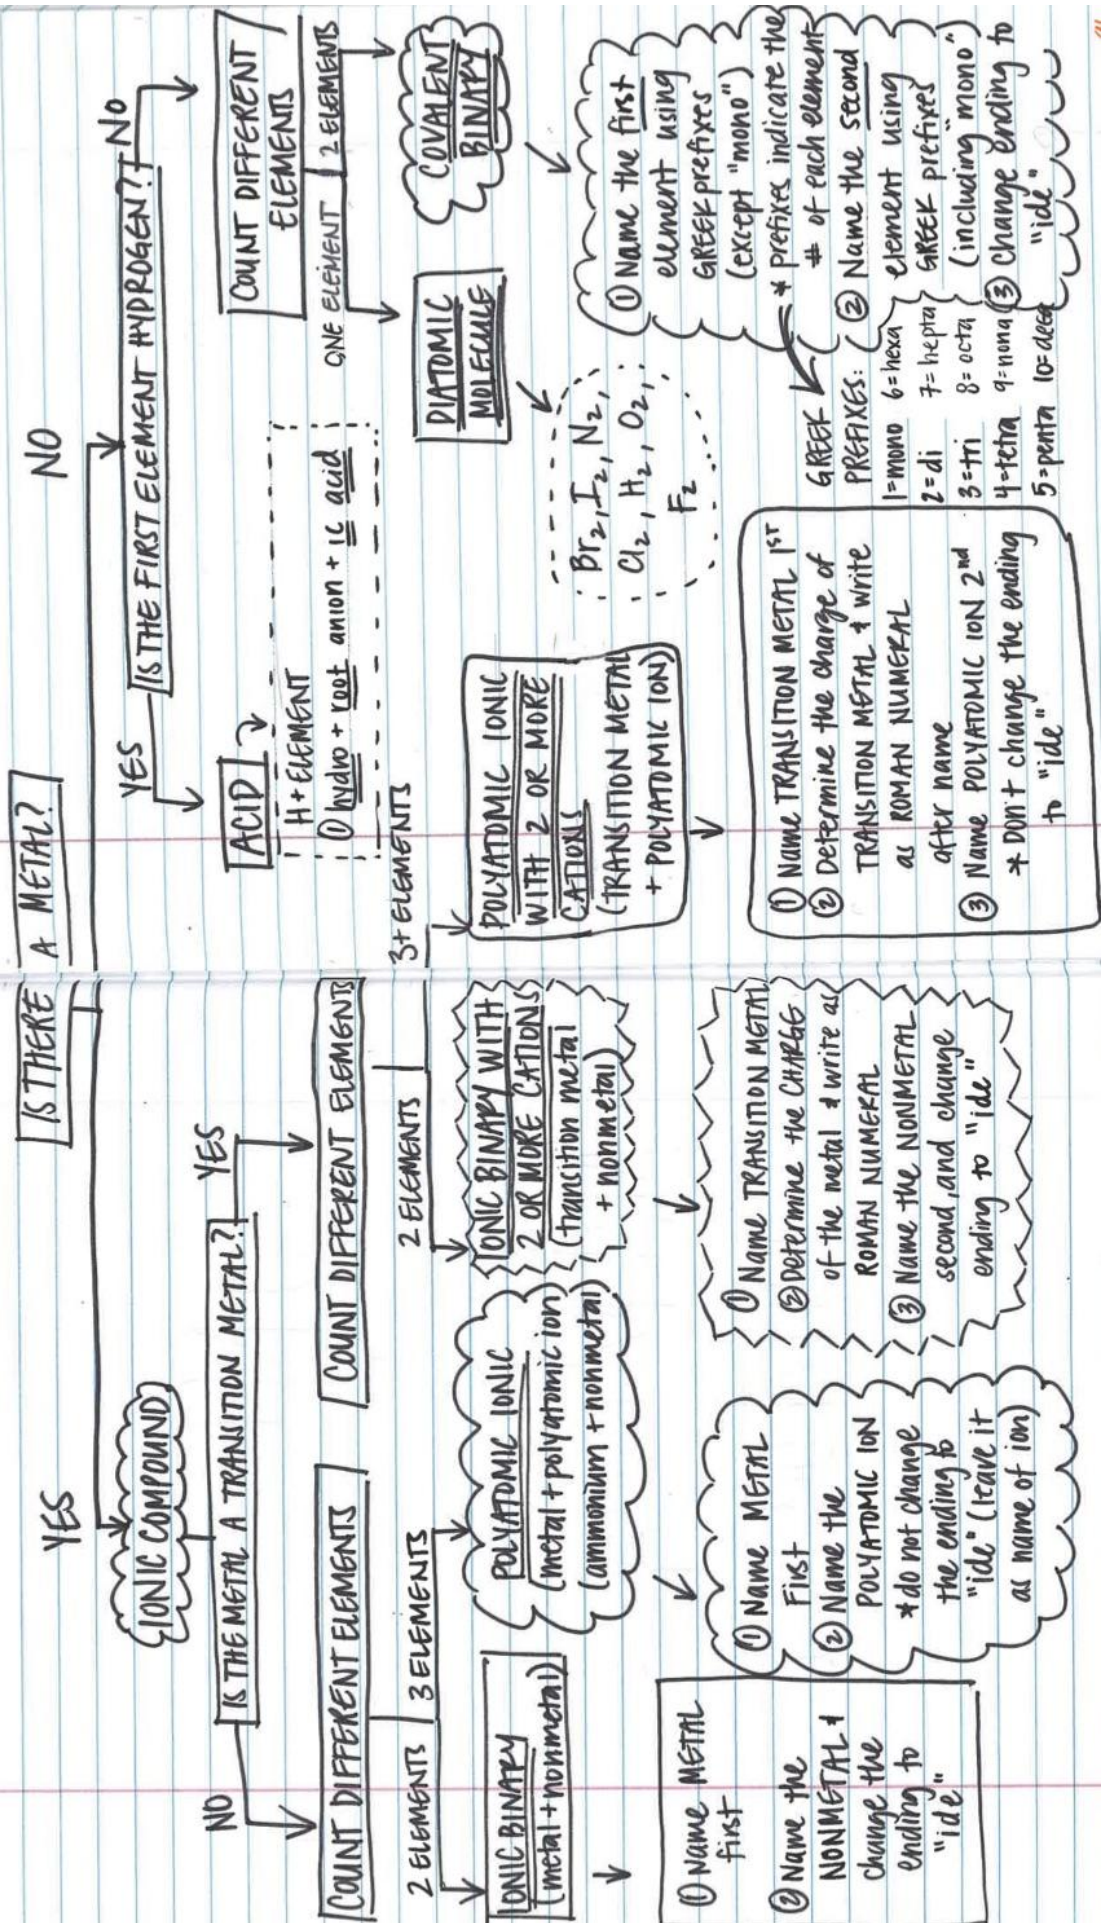 IS THERE A METAL?
YES
NO
IONIC COMPOUND
IS THE METAL A TRANSITION METAL?
NO
YES
COUNT DIFFERENT ELEMENTS
2 ELEMENTS
3 ELEMENTS
IONIC BINARY
(metal + nonmetal)
① Name METAL
first
② Name the
NONMETAL &
change the
ending to
"ide"
POLYATOMIC IONIC
(metal + polyatomic ion)
(ammonium + nonmetal)
① Name METAL
First
② Name the
POLYATOMIC ION
* do not change
the ending to
"ide" (leave it
as name of ion)
COUNT DIFFERENT ELEMENTS
2 ELEMENTS
3+ ELEMENTS
IONIC BINARY WITH
2 OR MORE CATIONS
(transition metal
+ nonmetal)
① Name TRANSITION METAL
② Determine the CHARGE
of the metal & write as
ROMAN NUMERAL
③ Name the NONMETAL
second, and change
ending to "ide"
POLYATOMIC IONIC
WITH 2 OR MORE
CATIONS
(TRANSITION METAL
+ POLYATOMIC ION)
① Name TRANSITION METAL 1ST
② Determine the charge of
TRANSITION METAL & write
as ROMAN NUMERAL
after name
③ Name POLYATOMIC ION 2nd
* Don't change the ending
to "ide"
IS THE FIRST ELEMENT HYDROGEN?
YES
NO
ACID
H + ELEMENT
① hydro + root anion + ic acid
COUNT DIFFERENT
ELEMENTS
ONE ELEMENT
2 ELEMENTS
DIATOMIC
MOLECULE
Br₂, I₂, N₂,
Cl₂, H₂, O₂,
F₂
COVALENT
BINARY
① Name the first
element using
GREEK prefixes
(except "mono")
* prefixes indicate the
# of each element
② Name the second
element using
GREEK prefixes
(including "mono")
③ Change ending to
"ide"
GREEK
PREFIXES:
1=mono 6=hexa
2=di 7=hepta
3=tri 8=octa
4=tetra 9=nona
5=penta 10=deca